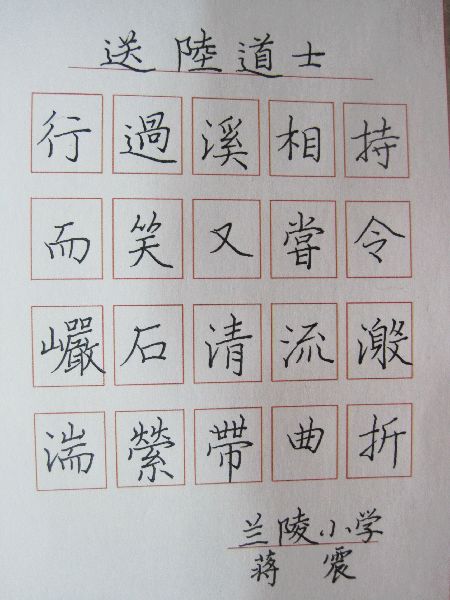 送陸道士
行過溪相持
而笑又嘗令
巗石清流激
湍縈帶曲折
兰陵小学
蒋震